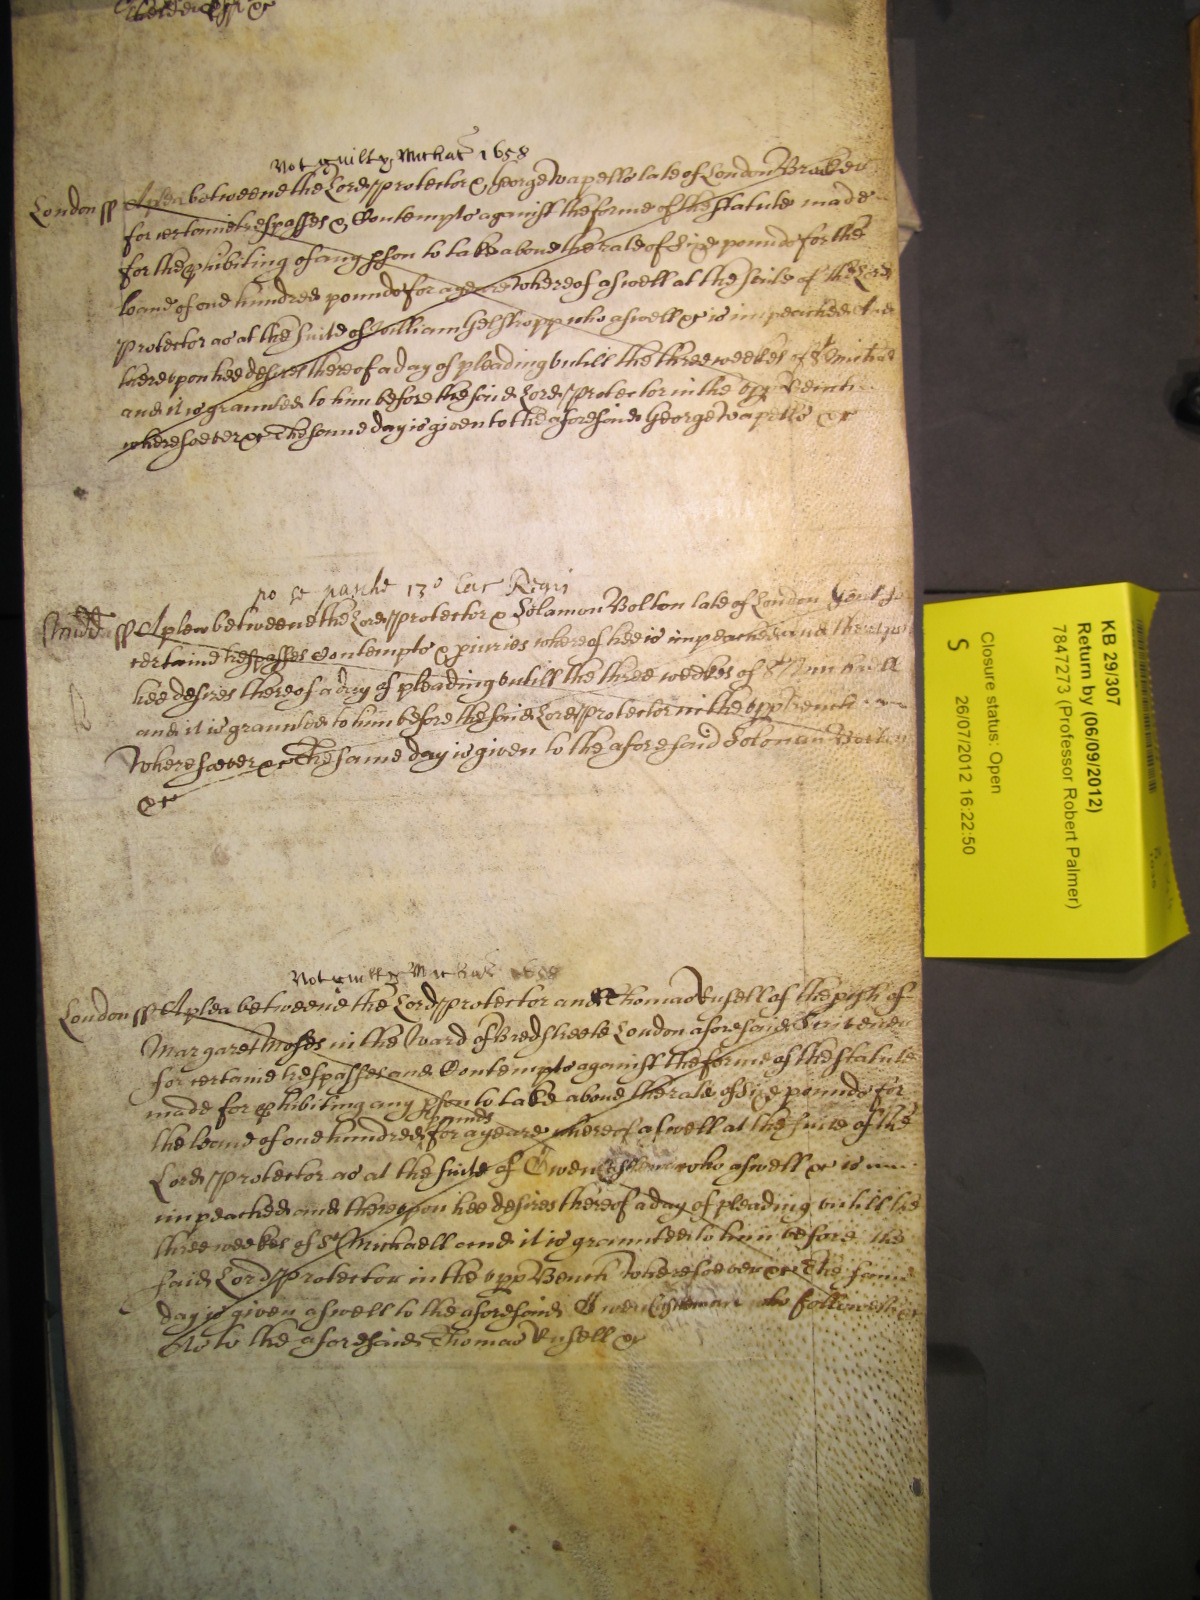 Not guilty Michas 1658
London ss A plea betweene the Lord Protector & George Wapello late of London Broker
for certaine trespasses & Contempts against the forme of the statute made
for the phibiting of any pson to take above the rate of Sixe pounds for the
loane of one hundred pounds for a yeare whereof aswell at the suite of the Lord
Protector as at the suite of William Gelstropp who aswell &c is impeached And
thereupon hee desires thereof a day of pleading untill the three weekes of St Michas
and it is graunted to him before the said Lord Protector in the upp Bench
wheresoever &c The same day is given to the aforesaid George Wapello &c
po se pasche 13º Car Regis
Midd ss A plea betweene the Lord Protector & Solamon Bolton late of London Gent
certaine trespasses Contempts & piuries whereof hee is impeached and thereupon
hee desires thereof a day of pleading untill the three weekes of St Michaell
and it is graunted to him before the said Lord Protector in the upp Bench
Wheresoever &c The same day is given to the aforesaid Soloman Bolton
&c
Not guilty Michas 1658
London ss A plea betweene the Lord Protector and Thomas Rusell of the pish of
Margarett Moses in the Ward of Bredstreete London aforesaid Scrivener
for certaine trespasses and Contempts against the forme of the statute
made for phibiting any pson to take above the rate of Sixe pounds for
the loane of one hundred pounds for a yeare whereof aswell at the suite of the
Lord Protector as at the suite of Owen who aswell &c is
impeached and thereupon hee desires thereof a day of pleading untill the
three weekes of St Michaell and it is graunted to him before the
said Lord Protector in the upp Bench Wheresoever &c The same
day is given aswell to the aforesaid Owen who followeth &c
As to the aforesaid Thomas Rusell &c
KB 29/307
Return by (06/09/2012)
7847273 (Professor Robert Palmer)
Closure status: Open
S 26/07/2012 16:22:50